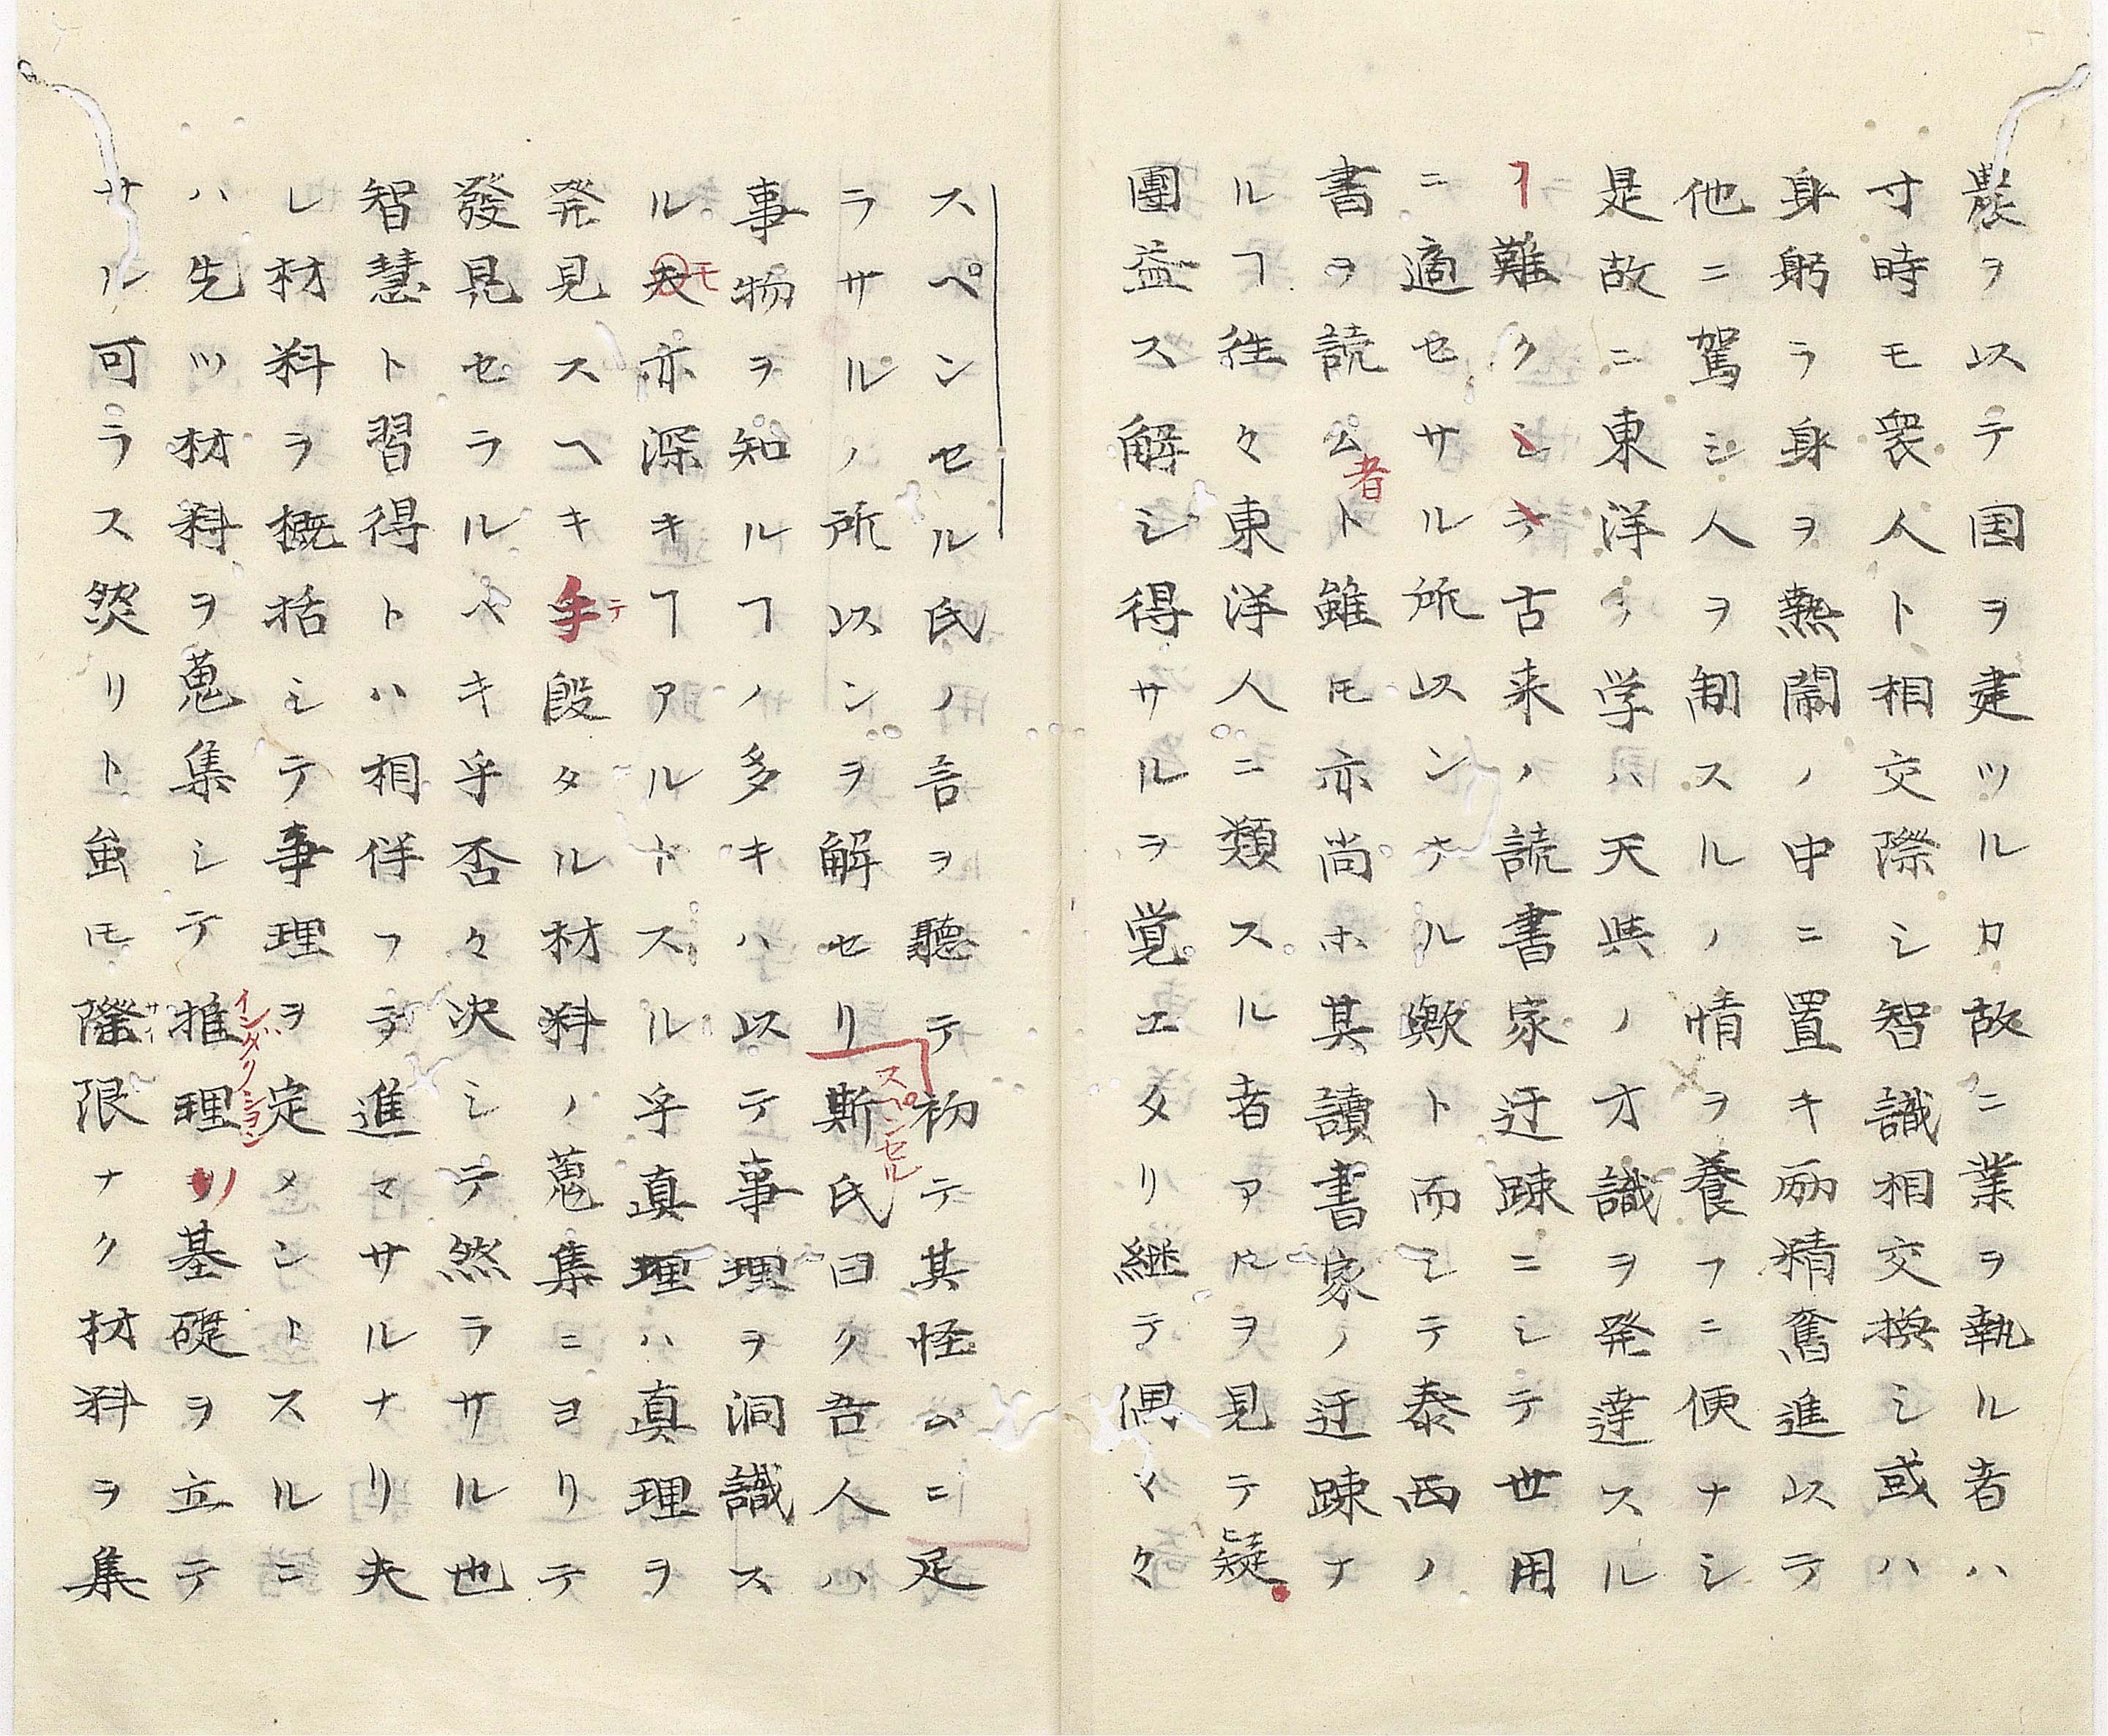 農ヲ以テ国ヲ建ツルカ故ニ業ヲ執ル者ハ
寸時モ衆人ト相交際シ智識相交換シ或ハ
身躬ラ身ヲ熱鬧ノ中ニ置キ励精奮進以テ
他ニ駕シ人ヲ制スルノ情ヲ養フニ便ナシ
是故ニ東洋ノ学ハ天与ノ才識ヲ発達スル
ヿ難クシテ古来ノ読書家迂疎ニシテ世用
ニ適セサル所以ンナル歟ト而シテ泰西ノ
書ヲ読ム者ト雖モ亦尚ホ其讀書家ノ迂疎ナ
ルヿ往々東洋人ニ類スル者アルヲ見テ疑
團益ス解シ得サルヲ覚エタリ継テ偶々
スペンセル氏ノ言ヲ聽テ初テ其怪ムニ足
ラサルノ所以ンヲ解セリ斯スペンセル氏曰ク吾人ハ
事物ヲ知ルヿノ多キハ以テ事理ヲ洞識ス
ル夫モ亦深キヿアルトスル乎真理ハ真理ヲ
発見スヘキ手テ段タル材料ノ蒐集ニヨリテ
發見セラルベキ乎否々決シテ然ラサル也
智慧ト習得トハ相伴フテ進マサルナリ夫
レ材料ヲ概括シテ事理ヲ定メントスルニ
ハ先ツ材料ヲ蒐集シテ推理インダクションノ基礎ヲ立テ
サル可ラス然リト虽モ際サイ限ナク材料ヲ集